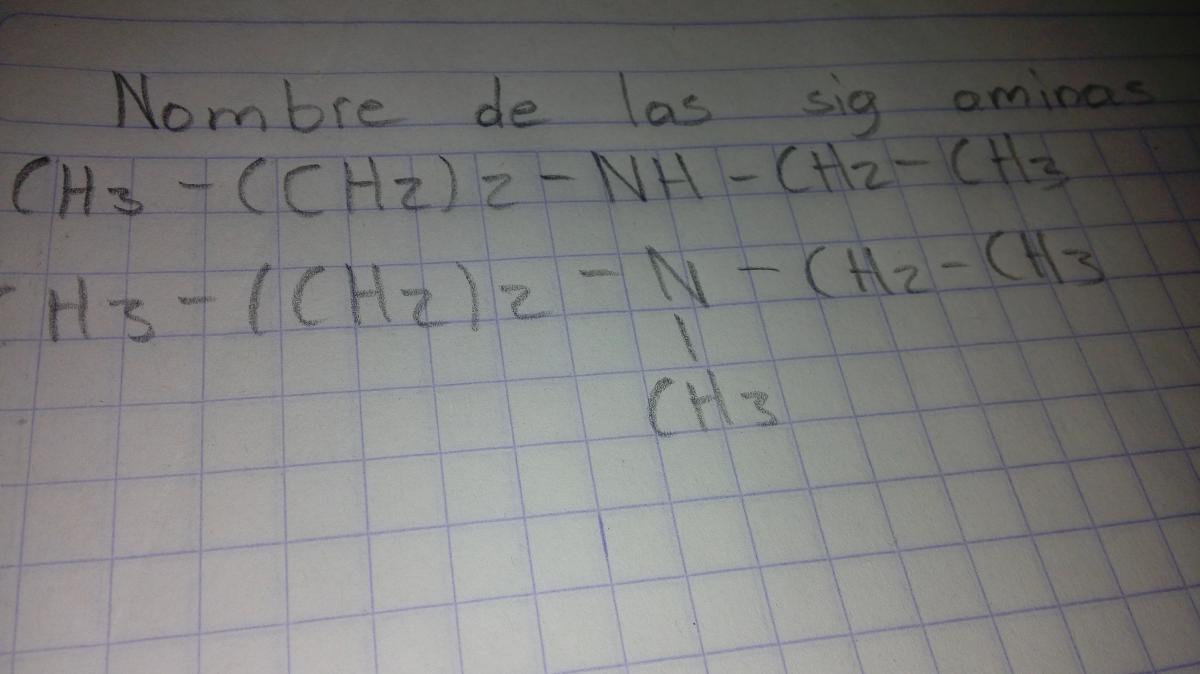 Nombre de las sig aminas
CH3 - (CH2)2 - NH - CH2 - CH3
H3 - (CH2)2 - N - CH2 - CH3
|
CH3